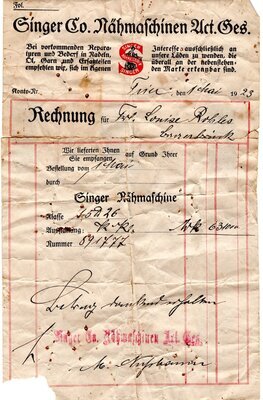 Fol.
Singer Co. Nähmaschinen Act. Ges.
Bei vorkommenden Repara-
turen und Bedarf in Nadeln,
Öl, Garn und Ersatzteilen
empfehlen wir, sich im eigenen
SINGER
Interesse ausschließlich an
unsere Läden zu wenden, die
überall an der nebenstehen-
den Marke erkennbar sind.
Konto-Nr.
Trier, den 1 Mai 1923
Rechnung für Frl. Louise
Wir lieferten Ihnen
Sie empfangen auf Grund Ihrer
Bestellung vom 1 Mai
durch
Singer Nähmaschine
Klasse
Ausstattung:
Nummer 891777
Betrag dankend erhalten
Singer Co. Nähmaschinen Act. Ges.